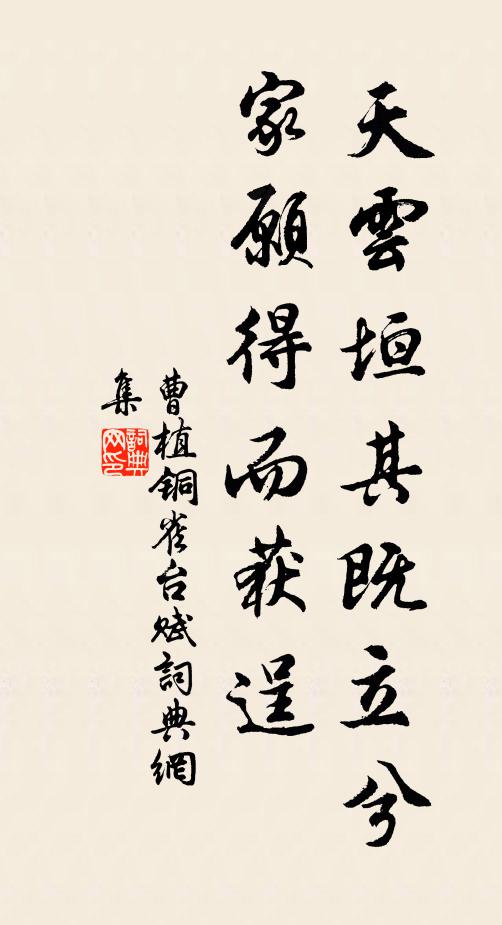 天雲垣其既立兮
家願得而获逞
曹植銅雀台賦詞典網
集
詞典网印